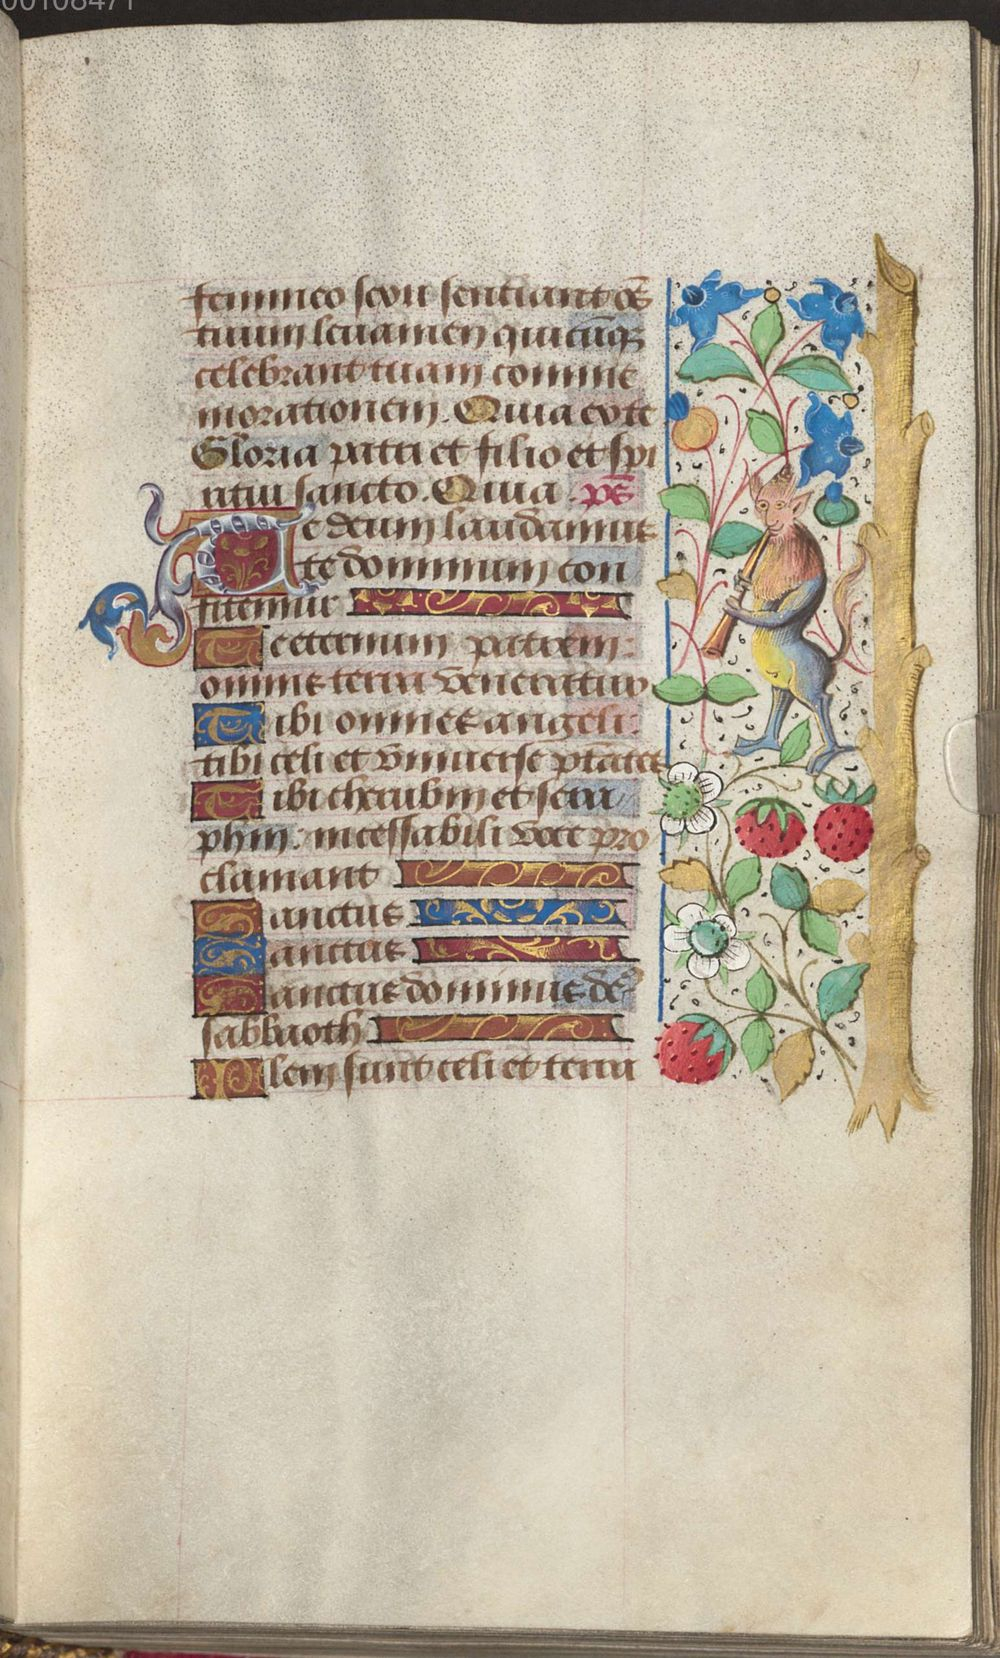 00108471
femineo sexu sentiant oēs
tuum levamen quicūqꝫ
celebrant tuam comme
morationem. Quia ex te
Gloria patri et filio et spi
ritui sancto. Quia. ps̄
Te deum laudamus
te dominum con
fitemur
Te eternum patrem:
omnis terra veneratur
Tibi omnes angeli:
tibi celi et universe ptātes
Tibi cherubin et sera
phin: incessabili voce pro
clamant
Sanctus
Sanctus
Sanctus dominus de9
sabbaoth
Pleni sunt celi et terra